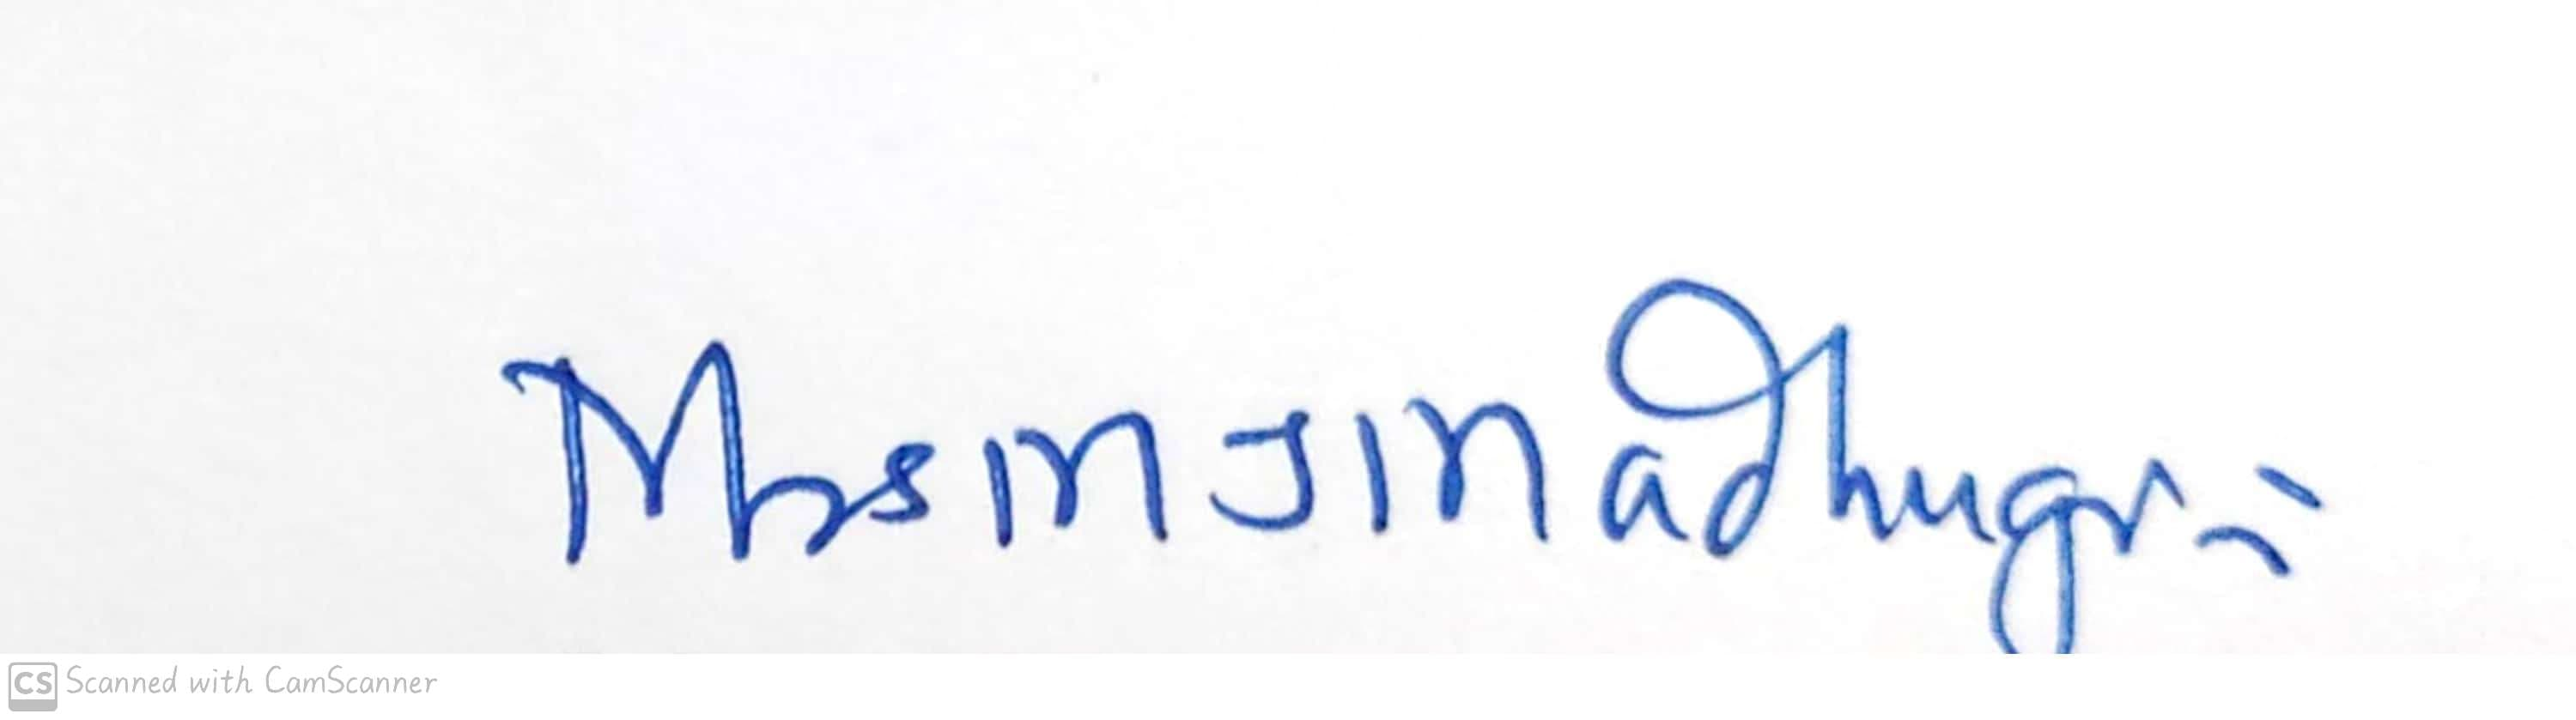 Mrs m J Madhugiri
CS Scanned with CamScanner